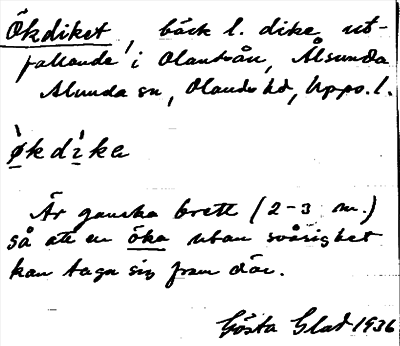 Ökdiket, bäck l. dike ut-
fallande i Olandsån, Ålsunda
Alunda sn, Olands hd, Upps. l.
økdike
Är ganska brett (2-3 m.)
så att en öka utan svårighet
kan taga sig fram där.
Gösta Glad 1936